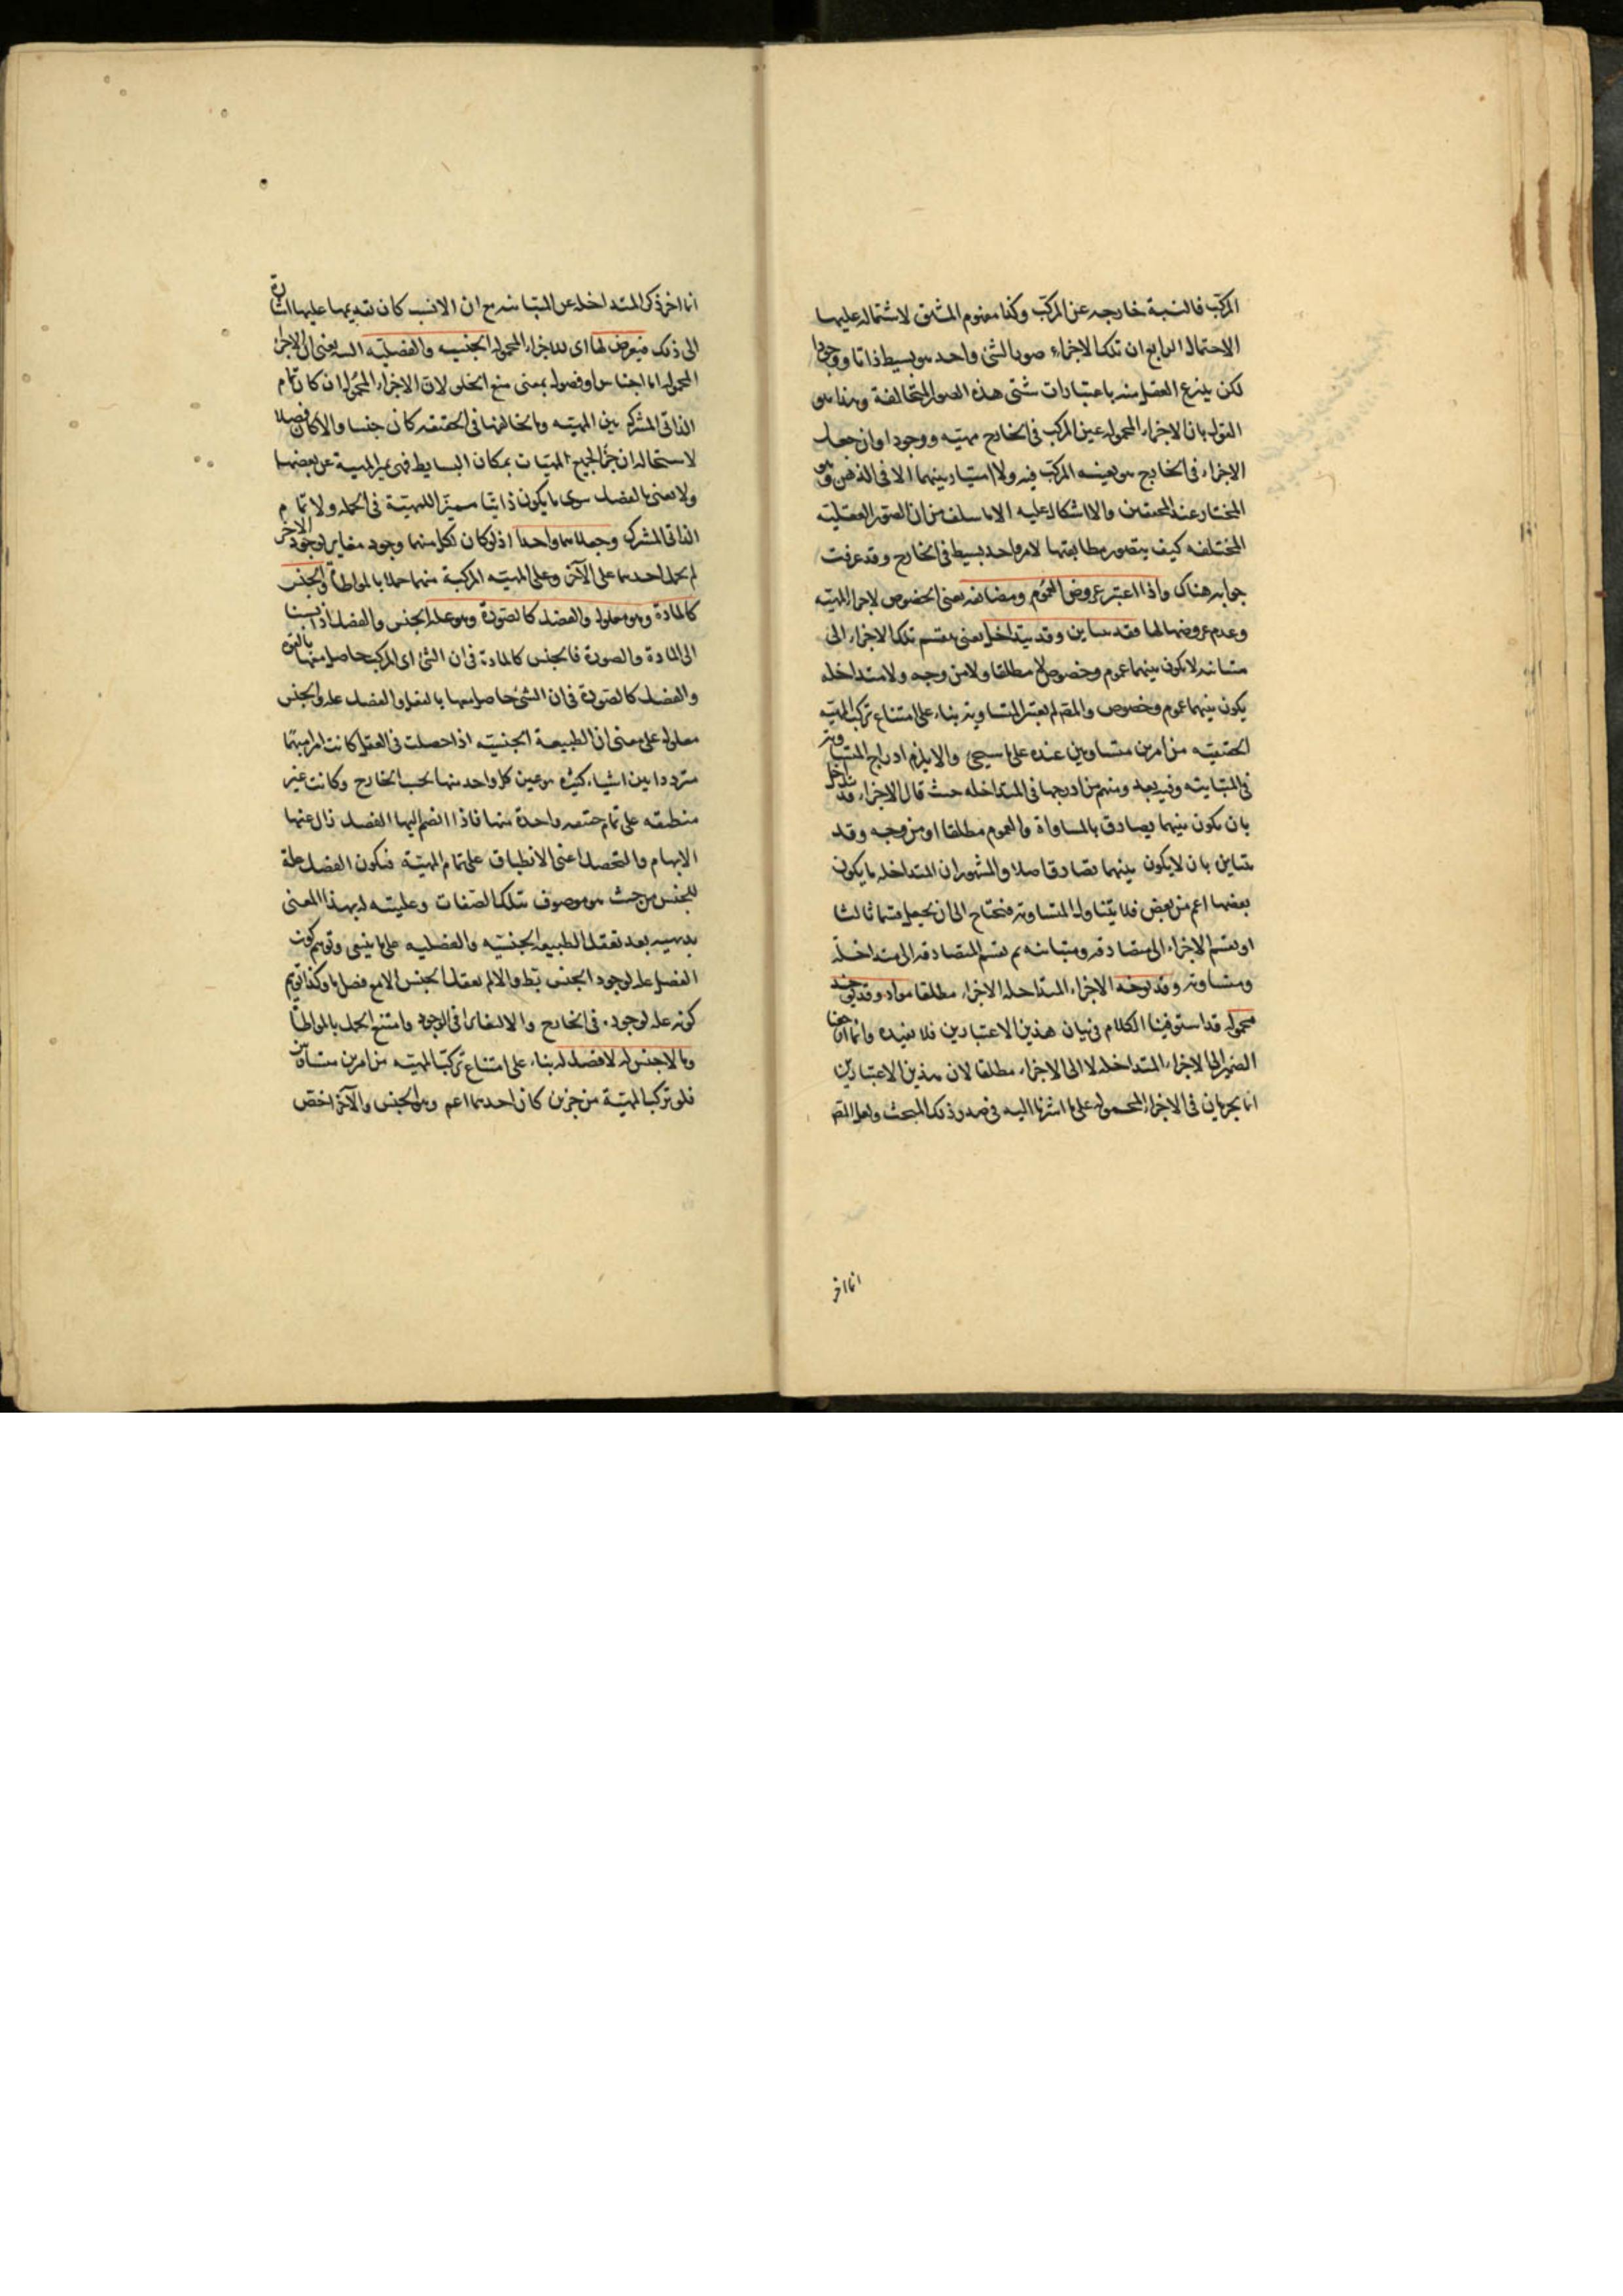 المركب فالنسبة خارجه عن المركب وكذا مفهوم المشتق لاشتماله عليها
الاحتمال الرابع ان تلك الاجزاء صور الشئ واحد هو بسيط ذاتا ووجودا
لكن ينزع العقل منه باعتبارات شتى هذه الصور المتخالفة وهذا هو
القول بان الاجزاء المحموله عين المركب في الخارج مهيته ووجودا وان جعل
الاجزاء في الخارج هو بعينه المركب فيه ولا امتياز بينهما الا في الذهن وهو
المختار عند المحققين والا اشكال عليه الا ما سلف من ان الصور العقليته
المختلفه كيف يتصور مطابقتها لامر واحد بسيط في الخارج وقد عرفت
جوابه هناك واذا اعتبر عروض العموم ومضايفه يعني الخصوص لاجزاء المهيته
وعدم عروضهما لها فقد يتباين وقد يتداخل يعني ينقسم تلك الاجزاء الى
متباينه لا يكون بينهما عموم وخصوص لا مطلقا ولا من وجه ولا متداخله
يكون بينهما عموم وخصوص والمقم لم يعتبر المتساويته بناء على امتناع تركب المهيته
الحقيقيته من امرين متساويين عنده على ما سيجئ والا يلزم ادراج المتساويه
في المتباينه وفيه بعد ومنهم من ادرجها في المتداخله حيث قال الاجزاء قد تتداخل
بان يكون بينهما تصادق بالمساواة والعموم مطلقا او من وجه وقد
يتباين بان لا يكون بينهما تصادق اصلا والمشهور ان المتداخله ما يكون
بعضها اعم من بعض فلا يتناول المتساويه فنحتاج الى ان نجعل قسما ثالثا
او نقسم الاجزاء الى متصادقه ومتباينه ثم نقسم المتصادقه الى متداخلة
ومتساويه وقد يؤخذ الاجزاء المتداخله الاجزاء مطلقا مواد وقد يؤخذ
محموله قد استوفينا الكلام في بيان هذين الاعتبارين فلا نعيده وانما ارجعنا
الضمير الى الاجزاء المتداخله لا الى الاجزاء مطلقا لان هذين الاعتبارين
انما يجريان في الاجزاء المحموله على ما اشرنا اليه في صدر ذلك المبحث ولعل المقم
انما اخر
انما اخر ذكر المتداخله عن المتباينه مع ان الانسب كان تقديمها عليها اشارة
الى ذلك فيعرض لها اى للاجزاء المحموله الجنسيه والفصليته يعنى ان الاجزاء
المحموله اما اجناس او فصول بمعنى منع الخلو لان الاجزاء المحموله ان كان تمام
الذاتي المشترك بين المهيته وما يخالفها في الحقيقه كان جنسا والا كان فصلا
لاستحاله ان جزأ لجميع المهيات بمكان البسايط فهى يميز المهيية عن بعضها
ولا نعنى بالفصل سوى ما يكون ذاتيا مميزا للمهيتة في الجمله ولا تمام
الذاتي المشترك وجعلاهما واحدا اذ لو كان لكل منهما وجود مغاير لوجود الاخر
لم يحمل احدهما على الآخر وعلى المهيته المركبة منهما حملا بالمواطأة والجنس
كالمادة وهو معلول والفصل كالصورة وهو علة الجنس والفصل اذا نسبنا
الى المادة والصورة فالجنس كالمادة في ان الشئ اى المركب حاصل منها بالقوه
والفصل كالصورة في ان الشئ حاصل معها بالفعل والفصل عله والجنس
معلول على معنى ان الطبيعة الجنسيته اذا حصلت في العقل كانت امرا مبهما
مترددا بين اشياء كثيره هو عين كل واحد منها بحسب الخارج وكانت غير
منطبقه على تمام حقيقه واحدة منها فاذا انضم اليها الفصل زال عنها
الابهام والتحصل اعنى الانطباق على تمام المهيته فيكون الفصل علة
للجنس من حيث هو موصوف بتلك الصفات وعليته له بهذا المعنى
بديهيه بعد تعقل الطبيعه الجنسيه والفصليه على ما ينبغى وتوهم كون
الفصل عله لوجود الجنس بط والا لم نعقل الجنس الا مع فصل ما وكذا توهم
كونه عله لوجوده في الخارج والا لتغايرا في الوجود وامتنع الحمل بالمواطأة
وما لا جنس له لا فصل له بناء على امتناع تركب المهيته من امرين متساويين
فلو تركب المهيتة من جزئين كان احدهما اعم وهو الجنس والآخر اخص